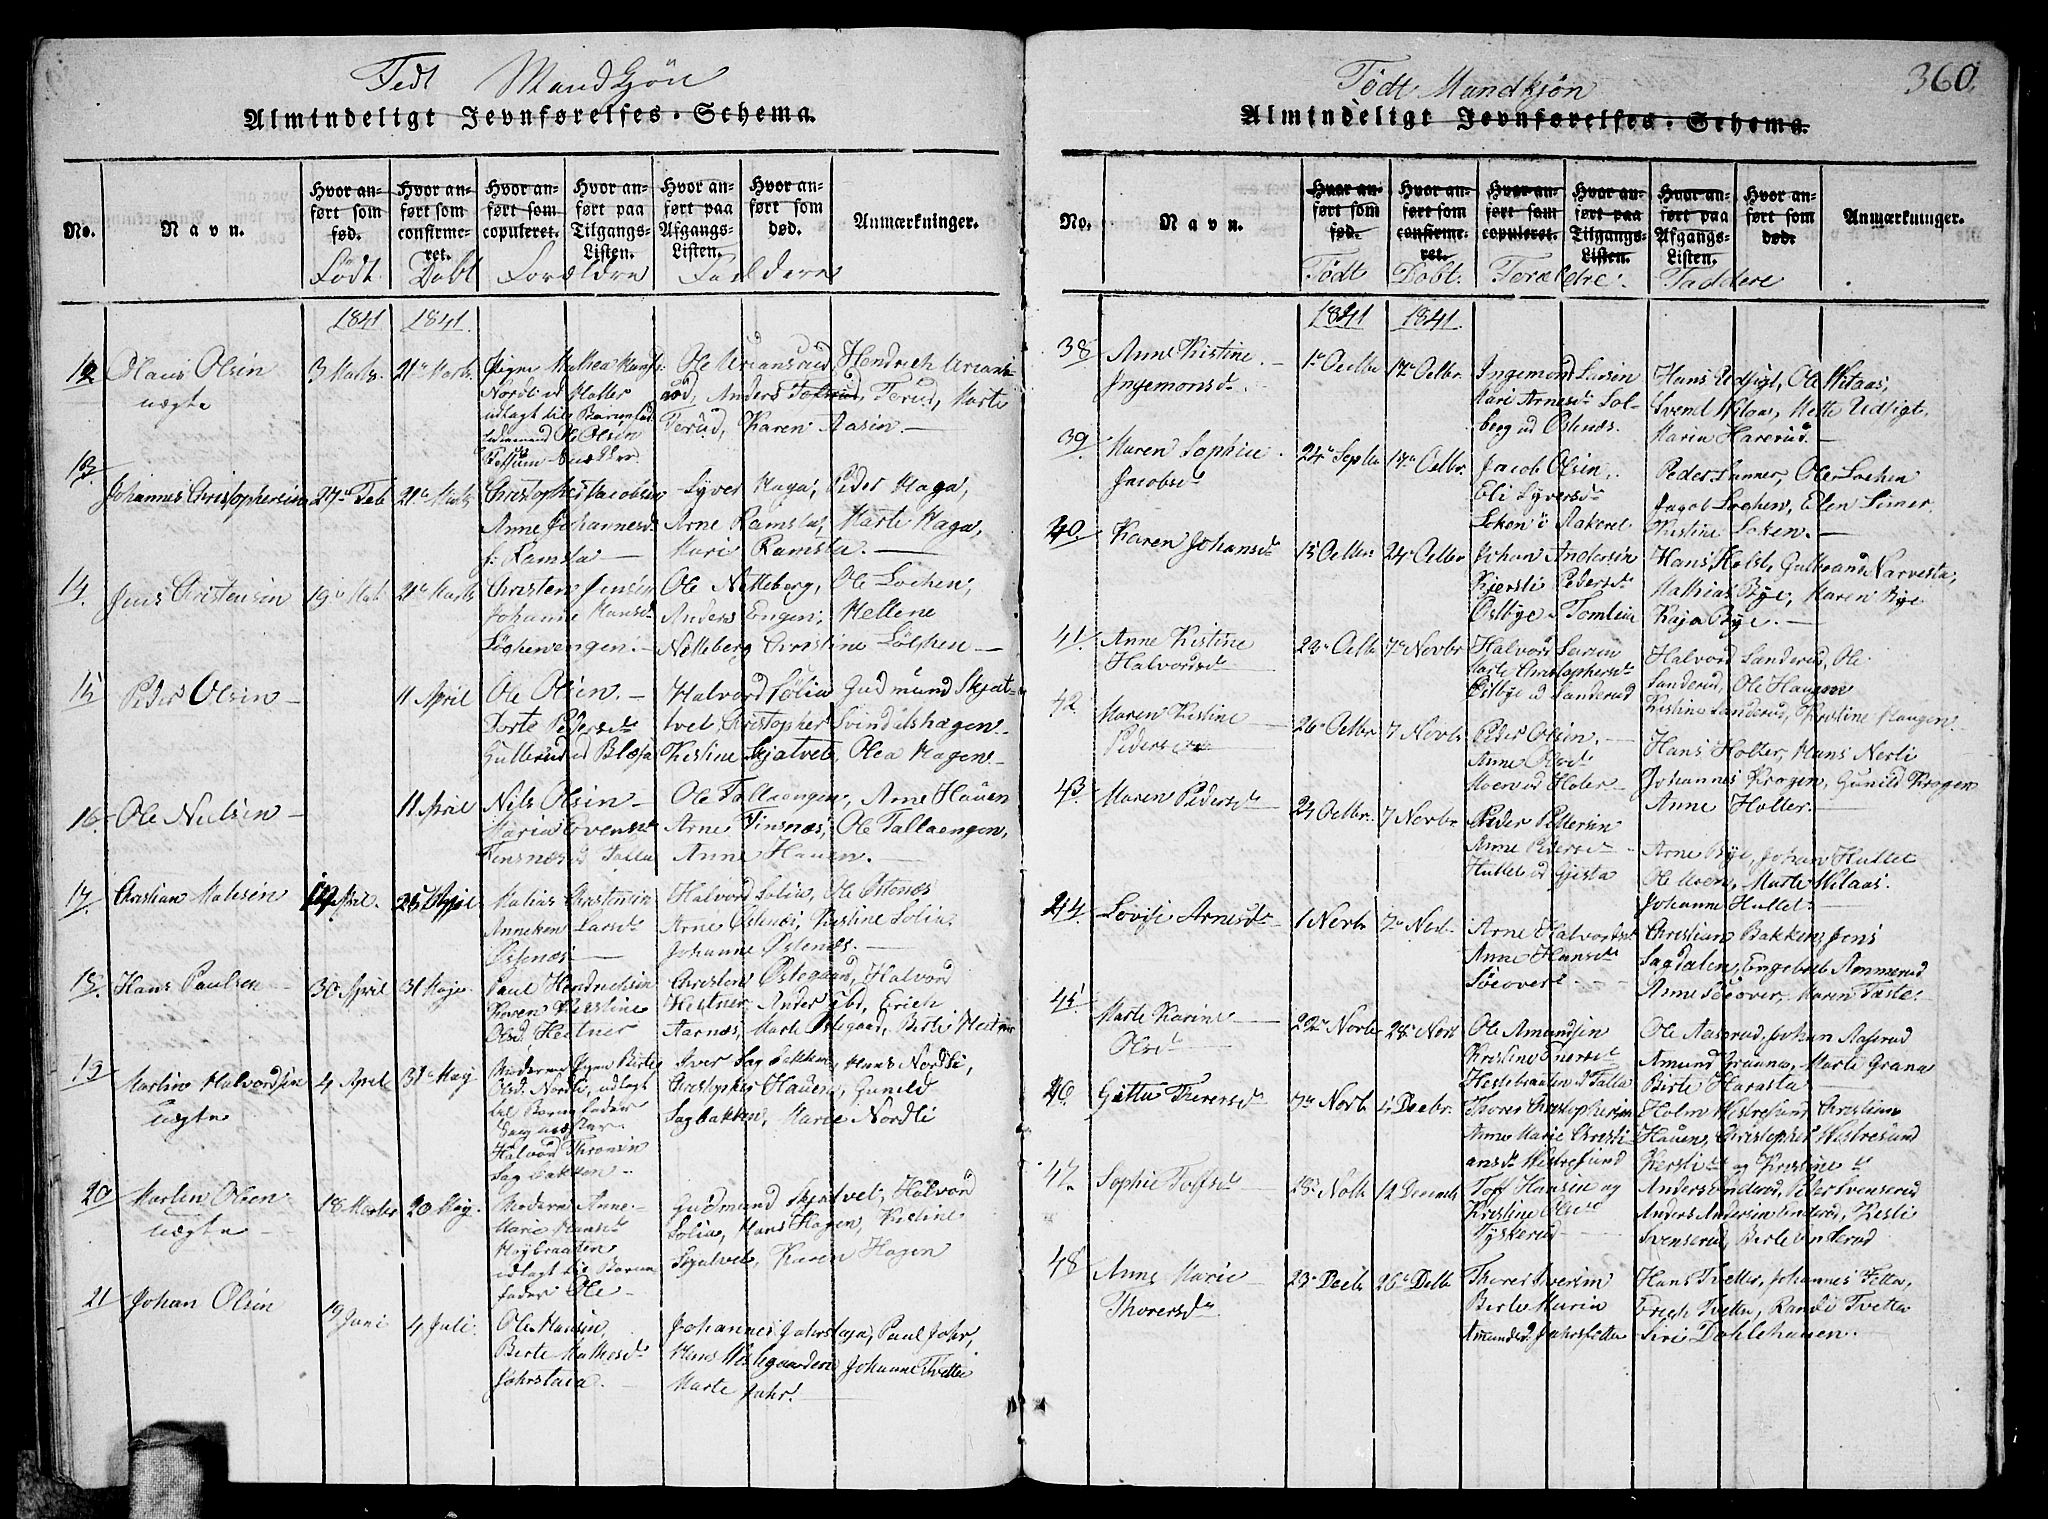 Født Mandkjøn
Almindeligt Jevnførelses-Schema.
No.
Navn.
Hvor anført som fød.
Hvor anført som confirmeret.
Hvor anført som copuleret.
Hvor anført paa Tilgangs-Listen.
Hvor anført paa Afgangs-Listen.
Hvor anført som død.
Anmærkninger.
Født Døbt Forældre Faddere
1841 1841
12 Olaus Olsin uægte
3 Marts 21de Marts
Pigen Mathea Hans
Nordli ud Holter
udlagt til Barnefader
Ole Olsin
Ole Uriansrud, Hendrich Urians-
rud, Anders Terud, Marte
Terud, Karen Aasin —
13 Johannes Christophersin 27de Feb 21de Marts
Christopher Jacobsen
Anne Johannesd
Ramsta —
Syver Haga, Peder Haga,
Arne Ramsta, Marte Haga,
Mari Ramsta. —
14 Jens Christensin 19de 21de Marts
Christen Jensen
Johanne Hansd
Løchenengen. —
Ole Netteberg, Ole Løchen,
Anders Engen, Hellene
Netteberg Christine Løchen —
15 Peder Olsin — 11 April
Ole Olsen. —
Dorte Pedersd
Gullerud ud Blæsa
Halvord Sølia Gudmund Skjat-
vet, Christopher Svindalshagen
Kistine Skjatvet, Olea Hagen —
16. Ole Nielsin — 11 April
Nils Olsin —
Maria Evensd
Finsnæs ud Talla
Ole Tallaengen, Arne Hauen
Arne Finsnæs, Ole Tallaengen,
Anne Hauen. —
17. Christian Matisin April. 25
Matias Christensin
Anneken Larsd
Østenæs —
Halvord Solia, Ole Østenæs
Arne Østenæs, Kistine Solia
Johanne Østenæs. —
18. Hans Paulsen 30 April 31 Maj
Paul Hendrichsen
Karen Kirstine
Olsd. Heitner
Christen Østegaard, Halvord
Heitner, Anders Ibd, Erich
Aarnæs, Marte Østegaard, Berte Heitner
19 Martin Halvordsin uægte
4 April 31te Maj
Moderen Pigen Berte
Olsd. Nordli, udlagt
til Barnefader
Halvord Thronsin
Sagbakken —
Iver Sagbakken, Hans Nordli,
Christopher Hauen, Gunild
Sagbakken, Marie Nordli
20 Martin Olsen uægte —
18 Marts 20 Maj.
Moderen Anne
Marie Hansd
Høybraaten
udlagt til Barne
fader Ole —
Gudmund Skjatvet, Halvord
Solia, Hans Hagen, Kistine
Skjatvet, Karen Hagen
21 Johan Olsin
19 Juni 4 Juli.
Ole Hansin,
Berte Mathesd
Jahrstuen. —
Johannes Jahrstuen, Paul Jahr,
Johanne Tvetter
Marte Jahr.
360.
Født Mandkjøn
Almindeligt Jevnførelses-Schema.
No.
Navn.
Hvor anført som fød.
Hvor anført som confirmeret.
Hvor anført som copuleret.
Hvor anført paa Tilgangs-Listen.
Hvor anført paa Afgangs-Listen.
Hvor anført som død.
Anmærkninger.
Født Døbt. Forældre. Faddere
1841 1841.
38 Anne Kistine Ingemonsd
1te Octbr 17de Octbr.
Ingemond Larsin
Mari Arnesd Sol-
berg ud Østenæs.
Hans Udsigt, Ole Kilaas,
Svend Kilaas, Mette Udsigt,
Marin Harerud. —
39 Maren Sophie Jacobsd
24de Septbr 17de Octbr.
Jacob Olsin,
Eli Syversd
Løken i Aakerel
Peder Lunner, Ole Løchen
Jacob Løchen, Elen Limer
Kistine Løken. —
40 Karen Johansd
15 Octbr 24de Octbr
Johan Andersin
Kjersti Pedersd
Østbye i Tomten
Hans Holst, Gulbrand Narvesta,
Mathias Bye, Maren Bye
Kaja Bye. —
41. Anne Kistine Halvordsd —
23de Octb 7de Novbr
Halvord Larsin
Marte Christophersd
Østbye ud Sanderud
Halvord Sanderud, Ole
Sanderud, Ole Haugen
Kistine Sanderud, Kristine Haugen
42. Maren Kistine Pedersd
26de Octbr 7 Novbr
Peder Olsin. —
Anne Olsd
Moen ud Holter.
Hans Holter, Hans Nerli
Johannes Krogen, Gunild Krogen
Anne Holter. —
43. Maren Pedersd
24 Octbr. 7 Novbr
Peder Pettersin
Anne Pedersd
Hullet ud Gjesta
Arne Bye, Johan Hullet
Ole Moen, Marte Kilaas.
Johanne Hullet
44. Lovise Arnesd
1 Novbr 7de Novb.
Arne Halvordsd
Anne Hansd
Søeover —
Christian Bakken, Jens
Sagdalen, Engebret Ammerud
Anne Søeover, Maren Taste.
45 Marte Karine Olsd
22de Novbr 28de Novb
Ole Amundsin
Kristine Enersd
Hestebraaten ud Talla
Ole Aaserud, Johan Aaserud
Amund Grauna, Marte Grana
Birte Harasta —
46. Gitta Thorersd
7de Novb 4 Decbr.
Thorer Christophersin
Anne Marie Christi
ansd Westresund
Holm Westresund, Christian
Hauen, Christopher Westresund
Kersti og Kristine
47. Sophie Toffsd
28de Novb 12 Decembr
Toff Hansin og
Kristine Olsd
Tyskerud
Anders Underud, Peder Svenserud
Anders Andersin Underud, Kesti
Svenserud, Berte Underud
48 Anne Marie Thorersd
23de Decbr 26de Decbr
Thorer Iversin
Berte Marin
Amundsd. Jahrstetter
Hans Tvetter, Johannes Tvetter,
Erich Tvetter, Randi Tvetter
Siri Dahlehauen. —